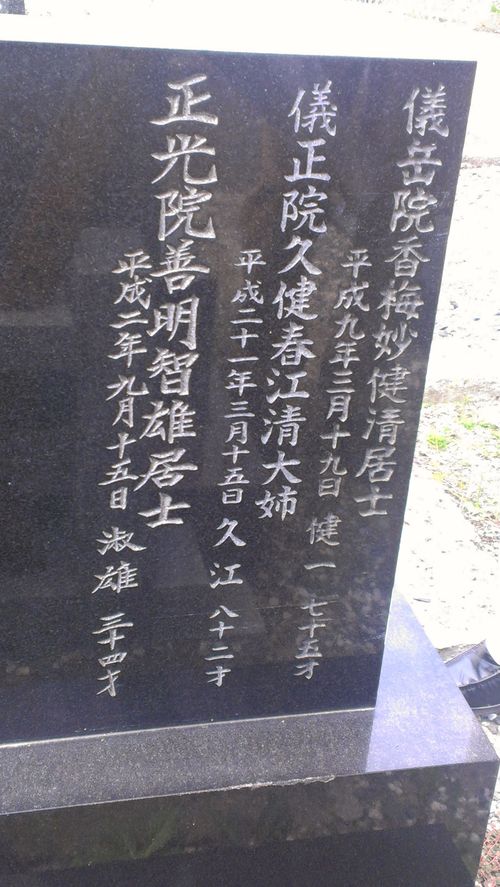 儀岳院香梅妙健清居士
平成九年三月十九日 健一 七十五才
儀正院久健春江清大姉
平成二十一年三月十五日 久江 八十二才
正光院善明智雄居士
平成二年九月十五日 淑雄 三十四才